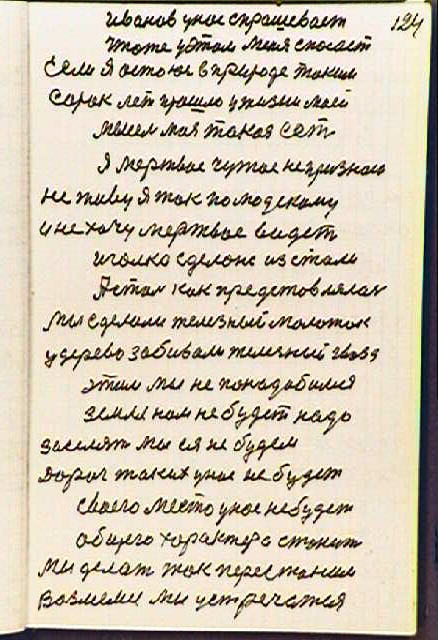 Иванов у нас спрашевает 124
тоже у этом меня спасает
Если Я остоюс в природе таким
Сорок лет прошло у жизни моей
мысел моя такая ест
Я мертвое чужое не признаю
не живу Я так по людскому
и не хочу мертвое видет
иголка сделонс из стали
А стал как предстовлялах
мы сделали железный молоток
у дерево забивали железный гвозд
этим мы не понадобился
земле нам не будет надо
заселят мы ея не будем
Дорог таких у нас не будет
своего место у нас небудет
общего характера
мы делат так перестаним
Возмеме мы устречатся